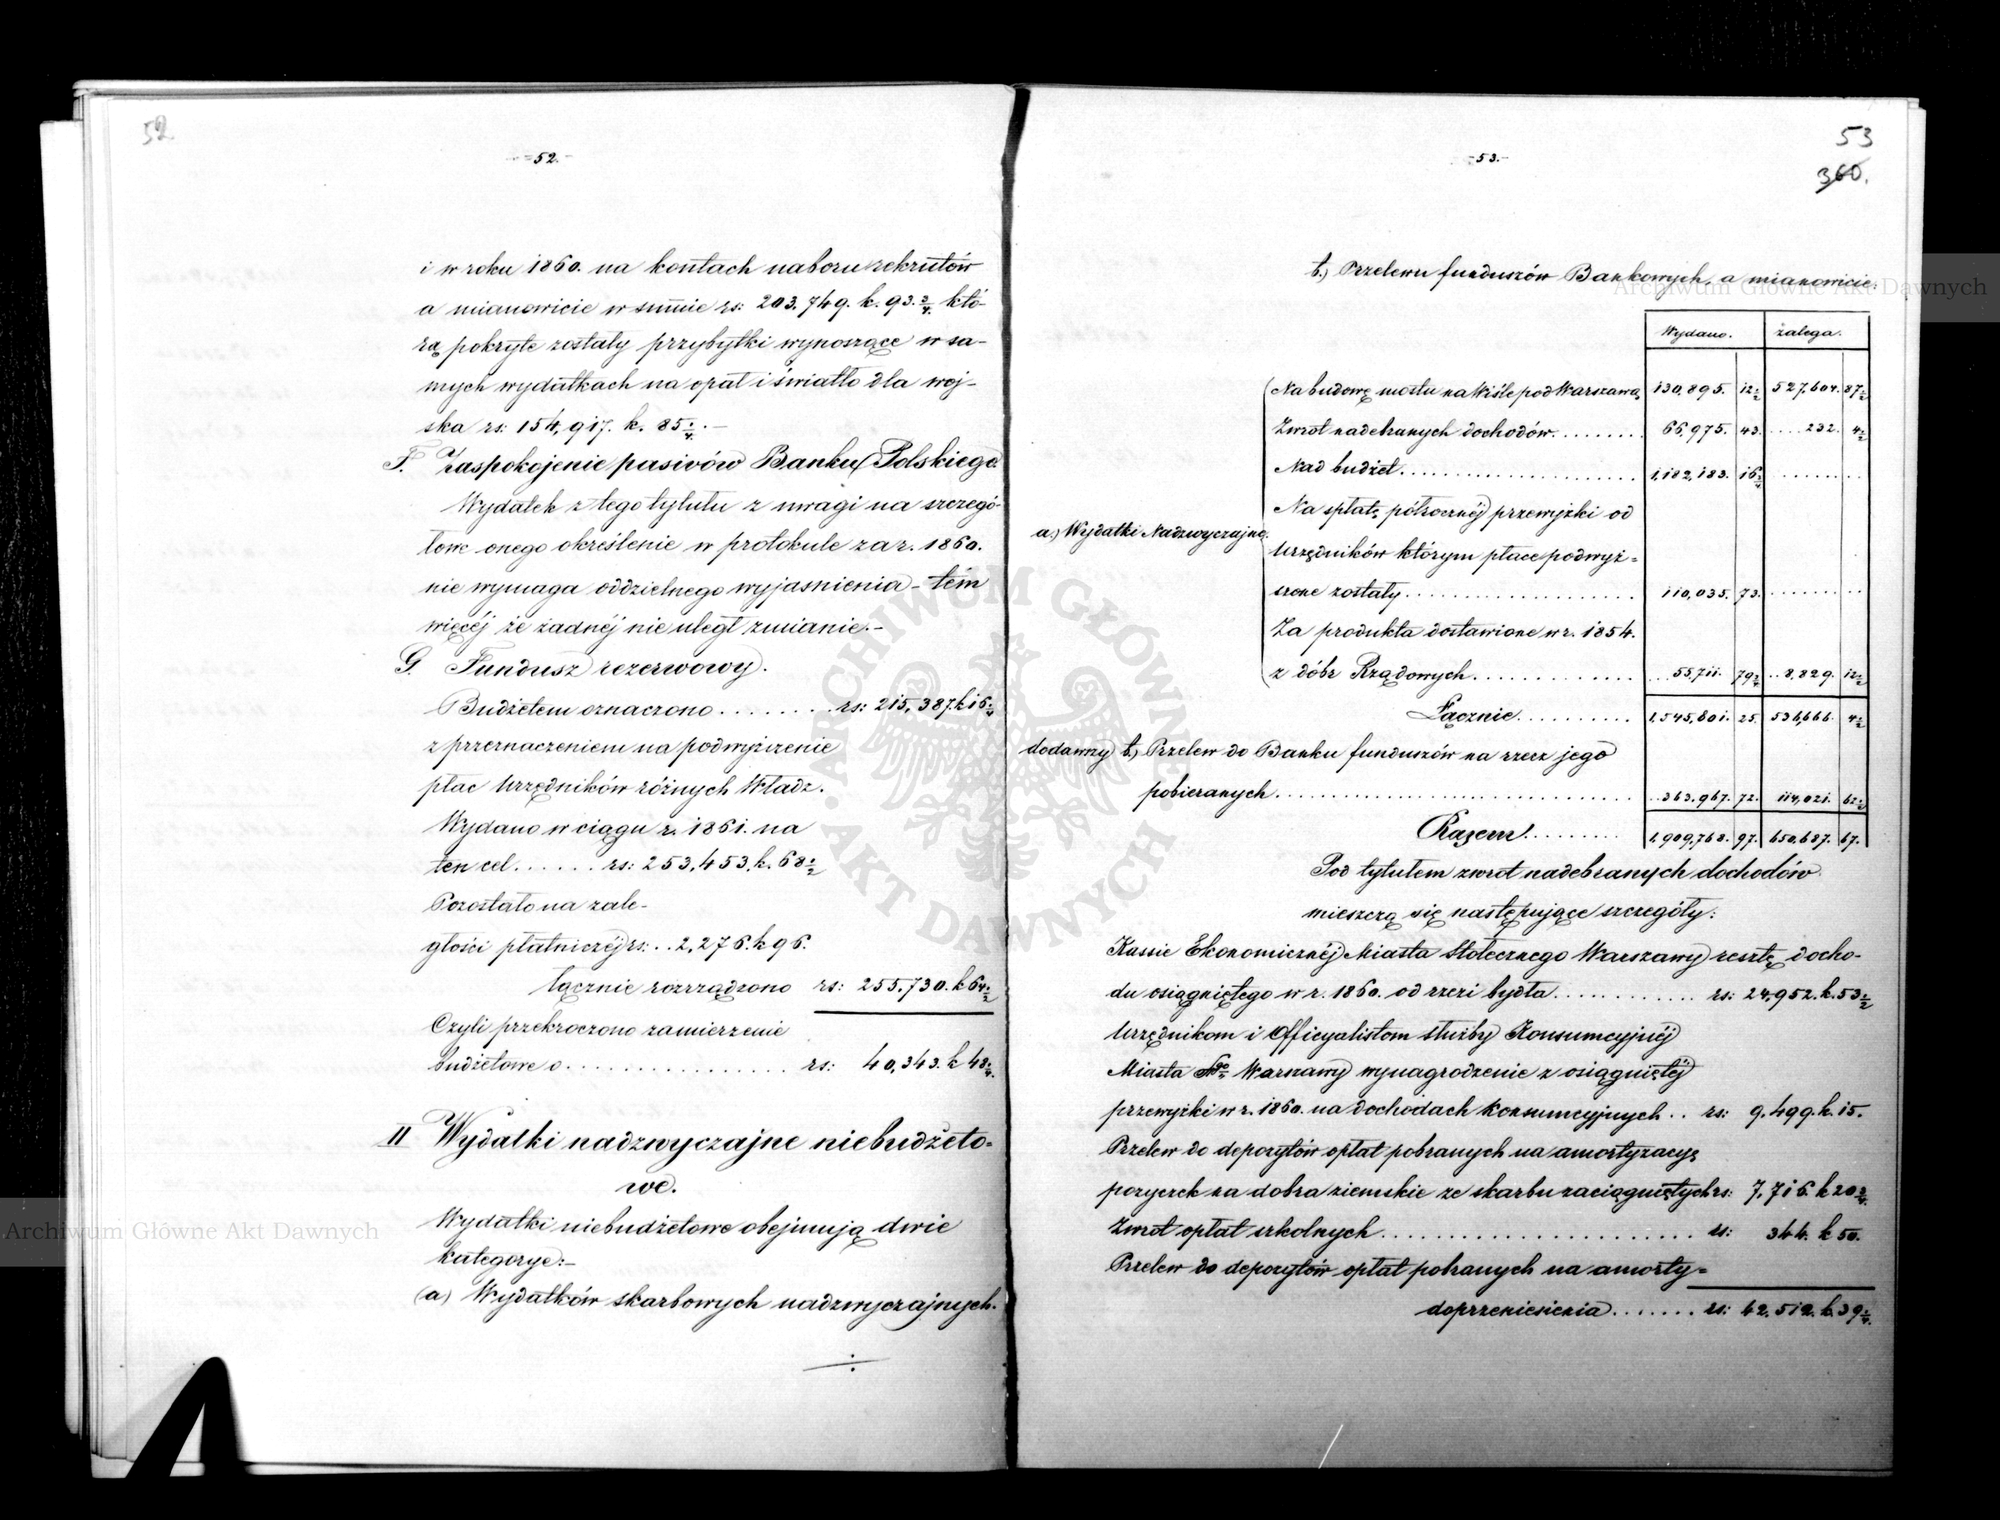 52
-52.-
i w roku 1860. na kontach naboru rekrutów
a mianowicie w summie rs: 203,749. k. 93.¾ któ-
rą pokryte zostały przybytki wynoszące w sa-
mych wydatkach na opał i światło dla woj-
ska rs: 154,917. k. 85¼.-
F. Zaspokojenie pasivów Banku Polskiego.
Wydatek z tego tytułu z uwagi na szczegó-
łowe onego określenie w protokule za r. 1860.
nie wymaga oddzielnego wyjasnienia - tém
więcéj że żadnéj nie uległ zmianie.-
G. Fundusz rezerwowy.
Budżetem oznaczono ........ rs: 215,387. k 16
z przeznaczeniem na podwyższenie
płac Urzędników różnych Władz.
Wydano w ciągu r. 1861. na
ten cel ...... rs: 253,453. k. 68½
Pozostało na zale-
głości płatniczéj rs: .. 2,276. k 96.
łącznie rozrządzono rs: 255,730. k 64½
Czyli przekroczono zamierzenie
budżetowe o ................ rs: 40,343. k 48¼.
II Wydatki nadzwyczajne niebudżeto=
we.
Wydatki niebudżetowe obejmują dwie
kategorye:-
(a) Wydatków skarbowych nadzwyczajnych.
53
360.
-53.-
b.) Przelewu funduszów Bankowych, a mianowicie:
Wydano. Zalega.
Na budowę mostu na Wiśle pod Warszawą 130,895. 12½ 527,604. 87½
Zwrot nadebranych dochodów ........ 66,975. 43. .... 232. 4½
Nad budżet ...................... 1,182,183. 16¾ ........
Na spłatę półrocznéj przewyżki od
a.) Wydatki Nadzwyczajne.
Urzędników którym płace podwyż=
szone zostały ..................... 110,035. 73. ........
Za produkta dostawione w r. 1854.
z dóbr Rządowych .............. 55,711. 79¾ .. 8,829. 12½
Łącznie .......... 1,545,801. 25. 536,666. 4½
dodawszy b.) Przelew do Banku funduszów na rzecz jego
pobieranych .............................. 363,967. 72. 114,021. 62½
Razem ......... 1,909,768. 97. 650,687. 67.
Pod tytułem zwrot nadebranych dochodów
mieszczą się następujące szczegóły:
Kassie Ekonomicznéj Miasta Stołecznego Warszawy resztę docho-
du osiągniętego w r. 1860. od rzezi bydła ............ rs: 24,952. k. 53½
Urzędnikom i Officyalistom służby Konsumcyjnéj
Miasta Warszawy wynagrodzenie z osiągniętéj
przewyżki w r. 1860. na dochodach konsumcyjnych .. rs: 9,499. k. 15.
Przelew do depozytów opłat pobranych na amortyzacyę
pozyczek na dobra ziemskie ze skarbu zaciągniętych rs: 7,716. k 20¾.
Zwrot opłat szkolnych ....................... rs: 344. k 50.
Przelew do depozytów opłat pobranych na amorty=
do przeniesienia ....... rs: 42,512. k. 39¼.
Archiwum Główne Akt Dawnych
Archiwum Główne Akt Dawnych
ARCHIWUM GŁÓWNE AKT DAWNYCH